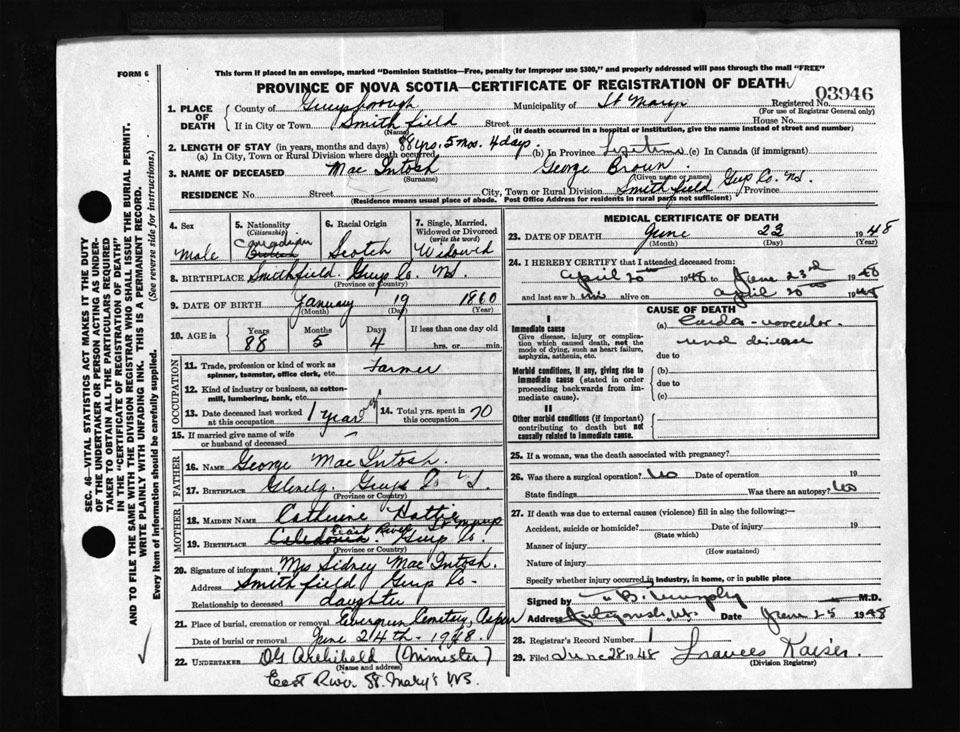 FORM 6
This form if placed in an envelope, marked "Dominion Statistics—Free, penalty for improper use $300," and properly addressed will pass through the mail "FREE"
PROVINCE OF NOVA SCOTIA—CERTIFICATE OF REGISTRATION OF DEATH
03946
1. PLACE OF DEATH County of Guysborough Municipality of St Marys Registered No.
(For use of Registrar General only)
If in City or Town Smithfield Street House No.
(Name) (If death occurred in a hospital or institution, give the name instead of street and number)
2. LENGTH OF STAY (in years, months and days) 88 yrs. 5 mos. 4 days.
(a) In City, Town or Rural Division where death occurred (b) In Province Lifetime (c) In Canada (if immigrant)
3. NAME OF DECEASED Mac Intosh George Brown
(Surname) (Given name or names)
RESIDENCE No. Street City, Town or Rural Division Smithfield Guys Co. N.S. Province
(Residence means usual place of abode. Post Office Address for residents in rural parts not sufficient)
4. Sex Male
5. Nationality (Citizenship) Canadian British
6. Racial Origin Scotch
7. Single, Married, Widowed or Divorced (write the word) Widowed
8. BIRTHPLACE Smithfield. Guys Co. N.S.
(Province or Country)
9. DATE OF BIRTH January 19 1860
(Month) (Day) (Year)
10. AGE in Years 88 Months 5 Days 4 If less than one day old hrs. or min.
OCCUPATION
11. Trade, profession or kind of work as spinner, teamster, office clerk, etc. Farmer
12. Kind of industry or business, as cotton-mill, lumbering, bank, etc.
13. Date deceased last worked at this occupation 1 year 14. Total yrs. spent in this occupation 70
15. If married give name of wife or husband of deceased
FATHER
16. NAME George MacIntosh.
17. BIRTHPLACE Glenelg. Guys Co N.S.
(Province or Country)
MOTHER
18. MAIDEN NAME Catherine Hattie
East River St Marys
19. BIRTHPLACE Caledonia. Guys Co.
(Province or Country)
20. Signature of informant Mrs Sidney MacIntosh.
Address Smithfield Guys Co.
Relationship to deceased daughter
21. Place of burial, cremation or removal Evergreen Cemetery, Aspen
Date of burial or removal June 24th - 1948.
22. UNDERTAKER DG Archibald (Minister)
(Name and address)
East River St. Mary's N.S.
MEDICAL CERTIFICATE OF DEATH
23. DATE OF DEATH June 23 1948
(Month) (Day) (Year)
24. I HEREBY CERTIFY that I attended deceased from:
April 20th 1948 to June 23rd 1948
and last saw him alive on April 20th 1948
CAUSE OF DEATH
I
Immediate cause
Give disease, injury or complication which caused death, not the mode of dying, such as heart failure, asphyxia, asthenia, etc.
(a) Cardio-vascular-
renal disease
due to
Morbid conditions, if any, giving rise to immediate cause (stated in order proceeding backwards from immediate cause).
(b)
due to
(c)
II
Other morbid conditions (if important) contributing to death but not causally related to immediate cause.
25. If a woman, was the death associated with pregnancy?
26. Was there a surgical operation? No Date of operation 19
State findings Was there an autopsy? No
27. If death was due to external causes (violence) fill in also the following:—
Accident, suicide or homicide? Date of injury 19
(State which)
Manner of injury
(How sustained)
Nature of injury
Specify whether injury occurred in industry, in home, or in public place
Signed by B. Murphy M.D.
Address Date June 25 1948
28. Registrar's Record Number 1
29. Filed June 28 1948 Frances Kaiser.
(Division Registrar)
SEC. 46—VITAL STATISTICS ACT MAKES IT THE DUTY
OF THE UNDERTAKER OR PERSON ACTING AS UNDER-
TAKER TO OBTAIN ALL THE PARTICULARS REQUIRED
IN THE "CERTIFICATE OF REGISTRATION OF DEATH"
AND TO FILE THE SAME WITH THE DIVISION REGISTRAR WHO SHALL ISSUE THE BURIAL PERMIT.
WRITE PLAINLY WITH UNFADING INK. THIS IS A PERMANENT RECORD.
Every item of information should be carefully supplied. (See reverse side for instructions.)